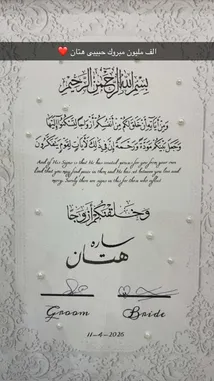 الف مليون مبروك حبيبي هتان ❤️
بِسْمِ اللَّهِ الرَّحْمَٰنِ الرَّحِيمِ
وَمِنْ آيَاتِهِ أَنْ خَلَقَ لَكُمْ مِنْ أَنْفُسِكُمْ أَزْوَاجًا لِتَسْكُنُوا إِلَيْهَا
وَجَعَلَ بَيْنَكُمْ مَوَدَّةً وَرَحْمَةً إِنَّ فِي ذَٰلِكَ لَآيَاتٍ لِقَوْمٍ يَتَفَكَّرُونَ
And of His Signs is that He has created spouses for you from your own
kind that you may find peace in them and He has set between you love and
mercy. Surely there are signs in this for those who reflect
وَخَلَقْنَاكُمْ أَزْوَاجًا
ساره
هتان
Groom Bride
11-4-2026